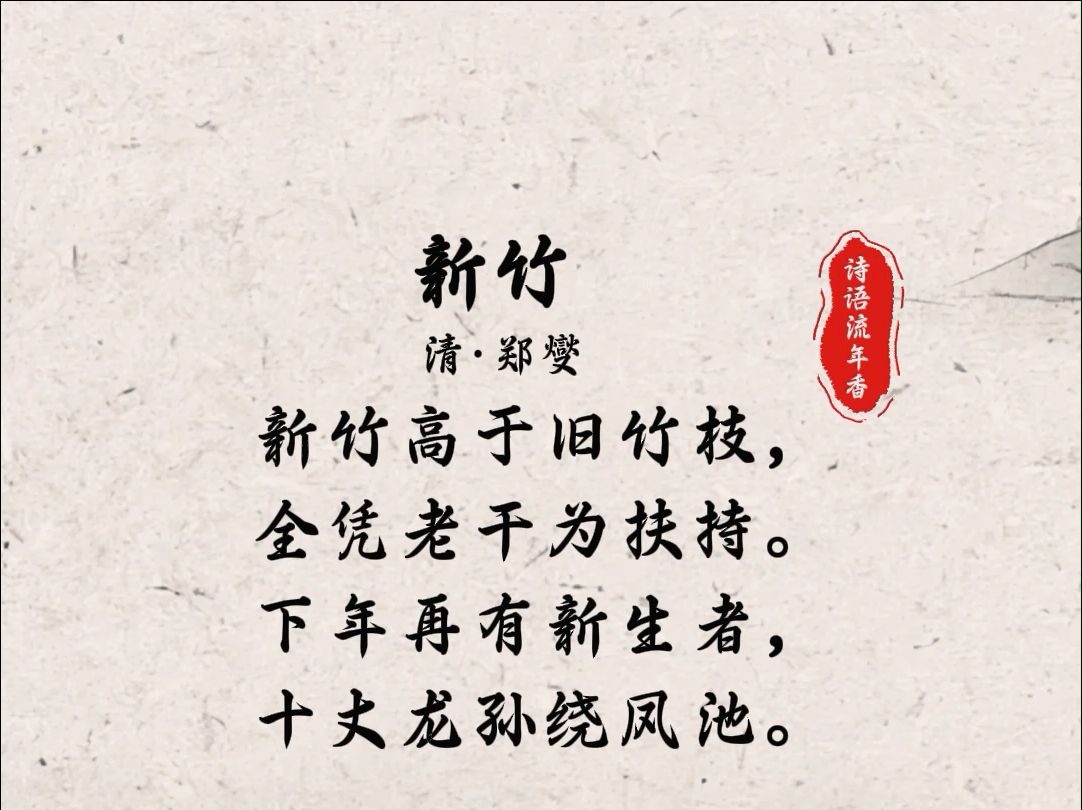 新竹
清·郑燮
新竹高于旧竹枝，
全凭老干为扶持。
下年再有新生者，
十丈龙孙绕凤池。
诗语流年香